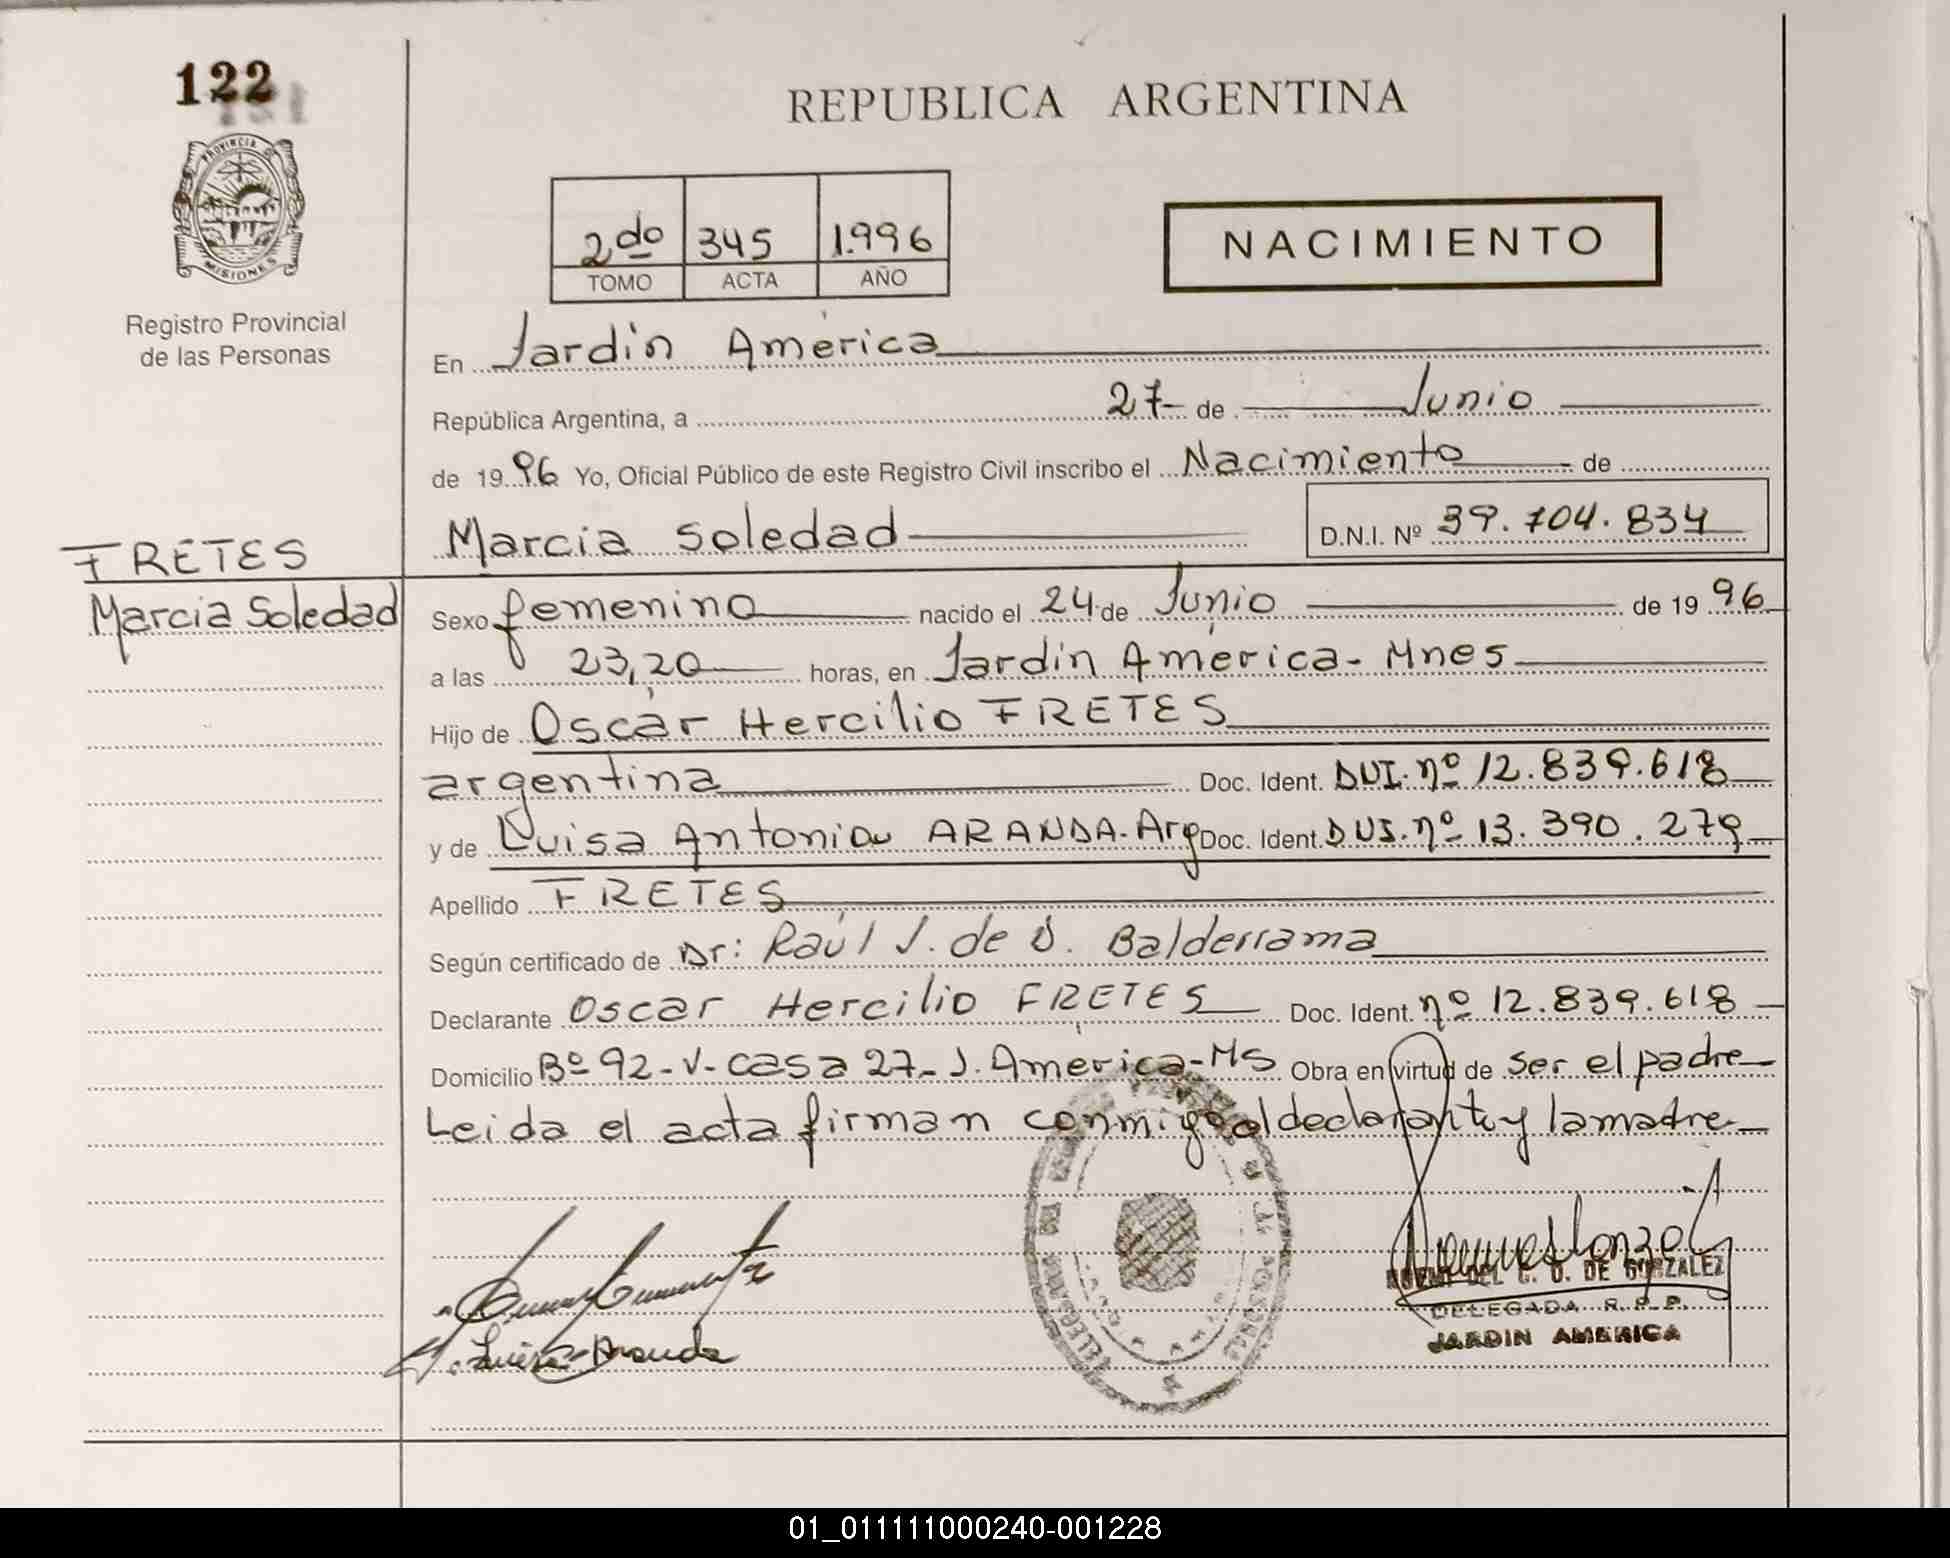 122
REPUBLICA ARGENTINA
PROVINCIA DE
MISIONES
Registro Provincial
de las Personas
2do 345 1.996
TOMO ACTA AÑO
NACIMIENTO
En Jardín América
República Argentina, a 27 de Junio
de 1996 Yo, Oficial Público de este Registro Civil inscribo el Nacimiento de
Marcia Soledad D.N.I. Nº 39.704.834
FRETES
Marcia Soledad
Sexo femenino nacido el 24 de Junio de 1996
a las 23,20 horas, en Jardín América - Mnes
Hijo de Oscar Hercilio FRETES
argentina Doc. Ident. DUI. nº 12.839.618
y de Luisa Antonia ARANDA. Arg Doc. Ident. DUI. nº 13.390.279
Apellido FRETES
Según certificado de Dr: Raúl J. de D. Balderrama
Declarante Oscar Hercilio FRETES Doc. Ident. nº 12.839.618
Domicilio Bº 92-V-casa 27- J. América-MS Obra en virtud de ser el padre
Leida el acta firman conmigo el declarante y la madre
DE GONZALEZ
DELEGADA R.P.P.
JARDIN AMERICA
Luisa Aranda
01_011111000240-001228